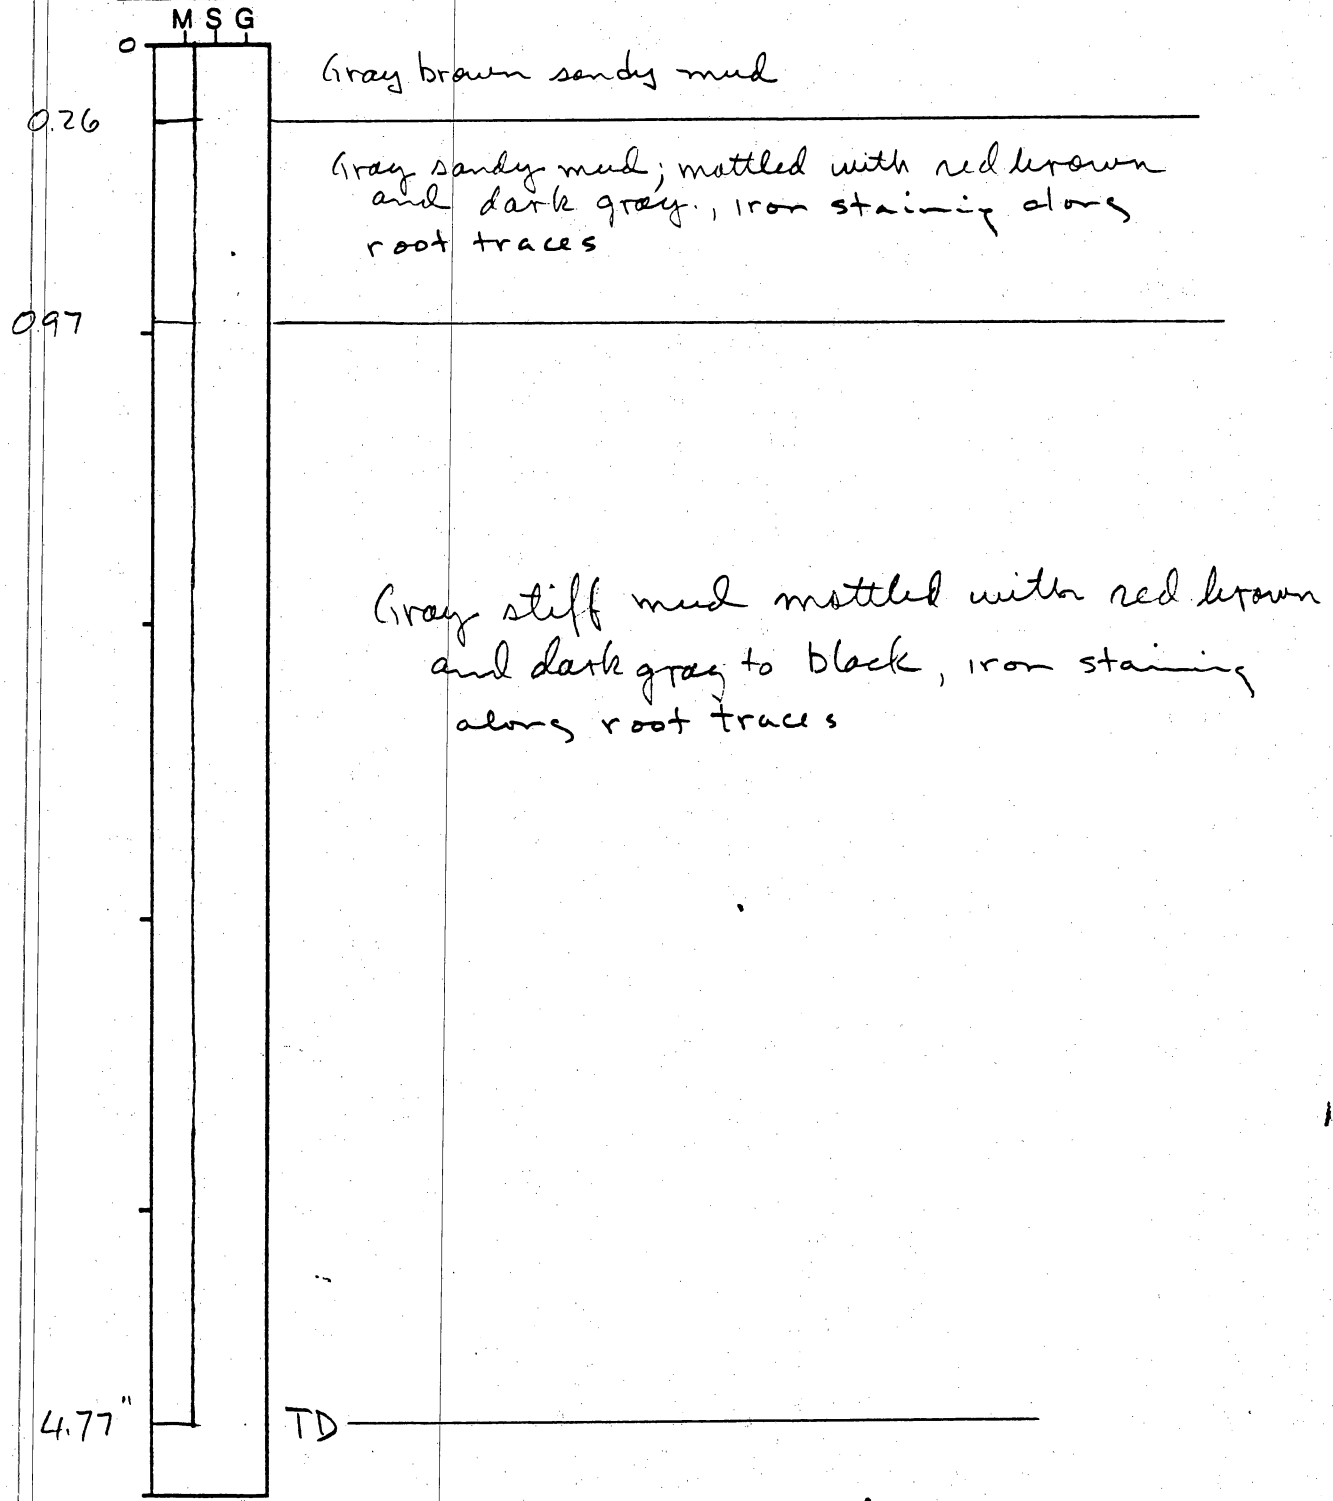 M S G
0
Gray brown sandy mud
0.26
Gray sandy mud; mottled with red brown
and dark gray., iron staining along
root traces
0.97
Gray stiff mud mottled with red brown
and dark gray to black, iron staining
along root traces
4.77"
TD